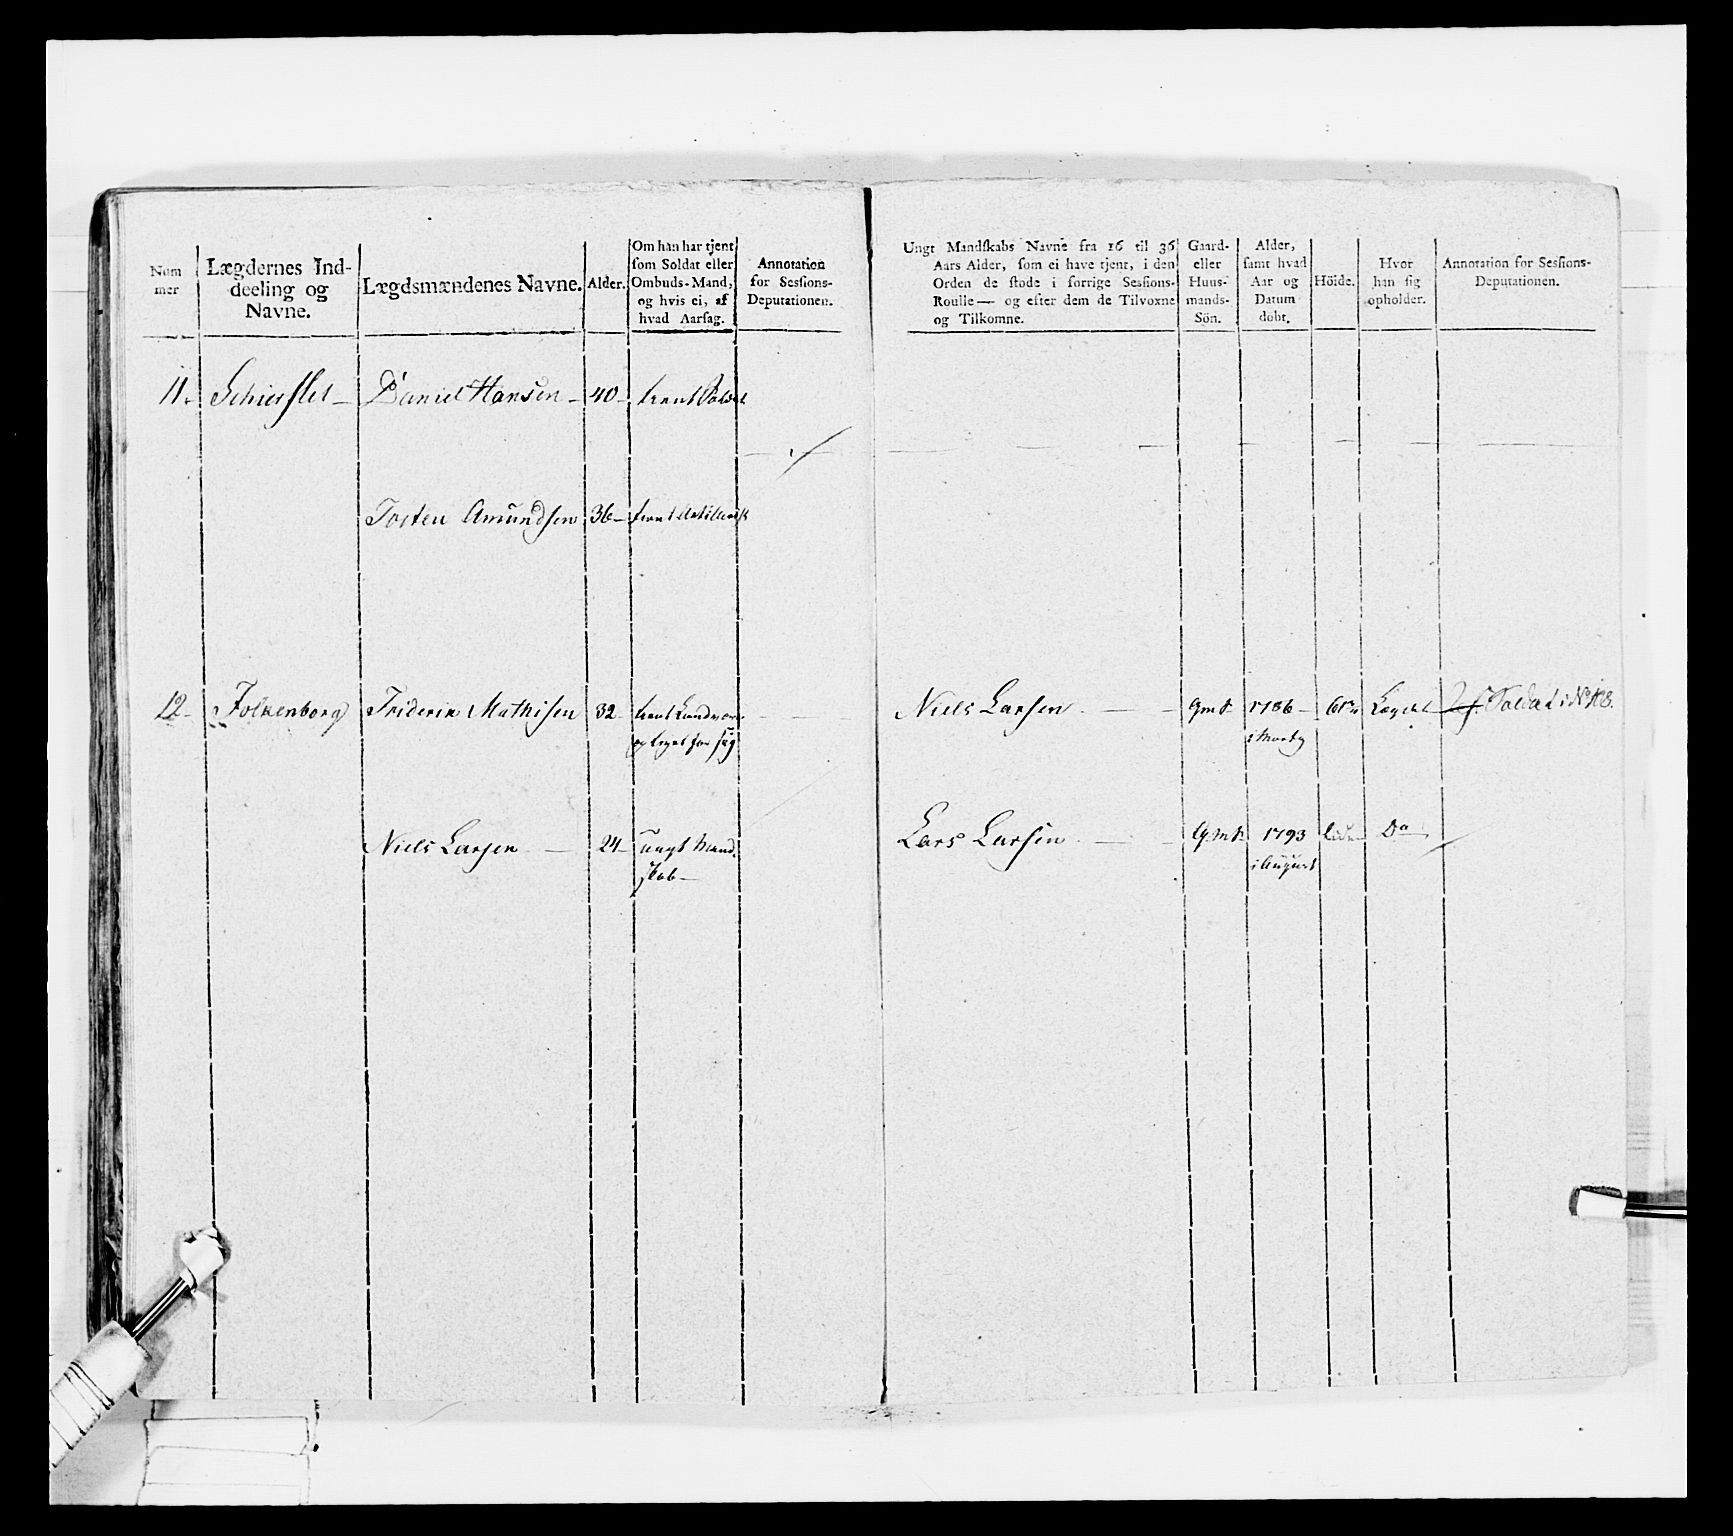 Num
mer
Lægdernes Ind-
deeling og
Navne.
Lægdsmændenes Navne.
Alder.
Om han har tjent
som Soldat eller
Ombuds-Mand,
og hvis ei, af
hvad Aarsag.
Annotation
for Sessions-
Deputationen.
Ungt Mandskabs Navne fra 16 til 36
Aars Alder, som ei have tjent, i den
Orden de stode i forrige Sessions-
Roulle — og efter dem de Tilvoxne
og Tilkomne.
Gaard-
eller
Huus-
mands-
Sön.
Alder,
samt hvad
Aar og
Datum
döbt.
Höide.
Hvor
han sig
opholder.
Annotation for Sessions-
Deputationen.
11. Daniel Hansen 40 tient Soldat
Tosten Amundsen 36
12 Folkenborg Friderik Mathisen 32 tient Landværn Niels Larsen 1786 Lægdet Soldat i No
for sig
Niels Larsen 24 ungt Mand- Lars Larsen 1793 Do
skab i August